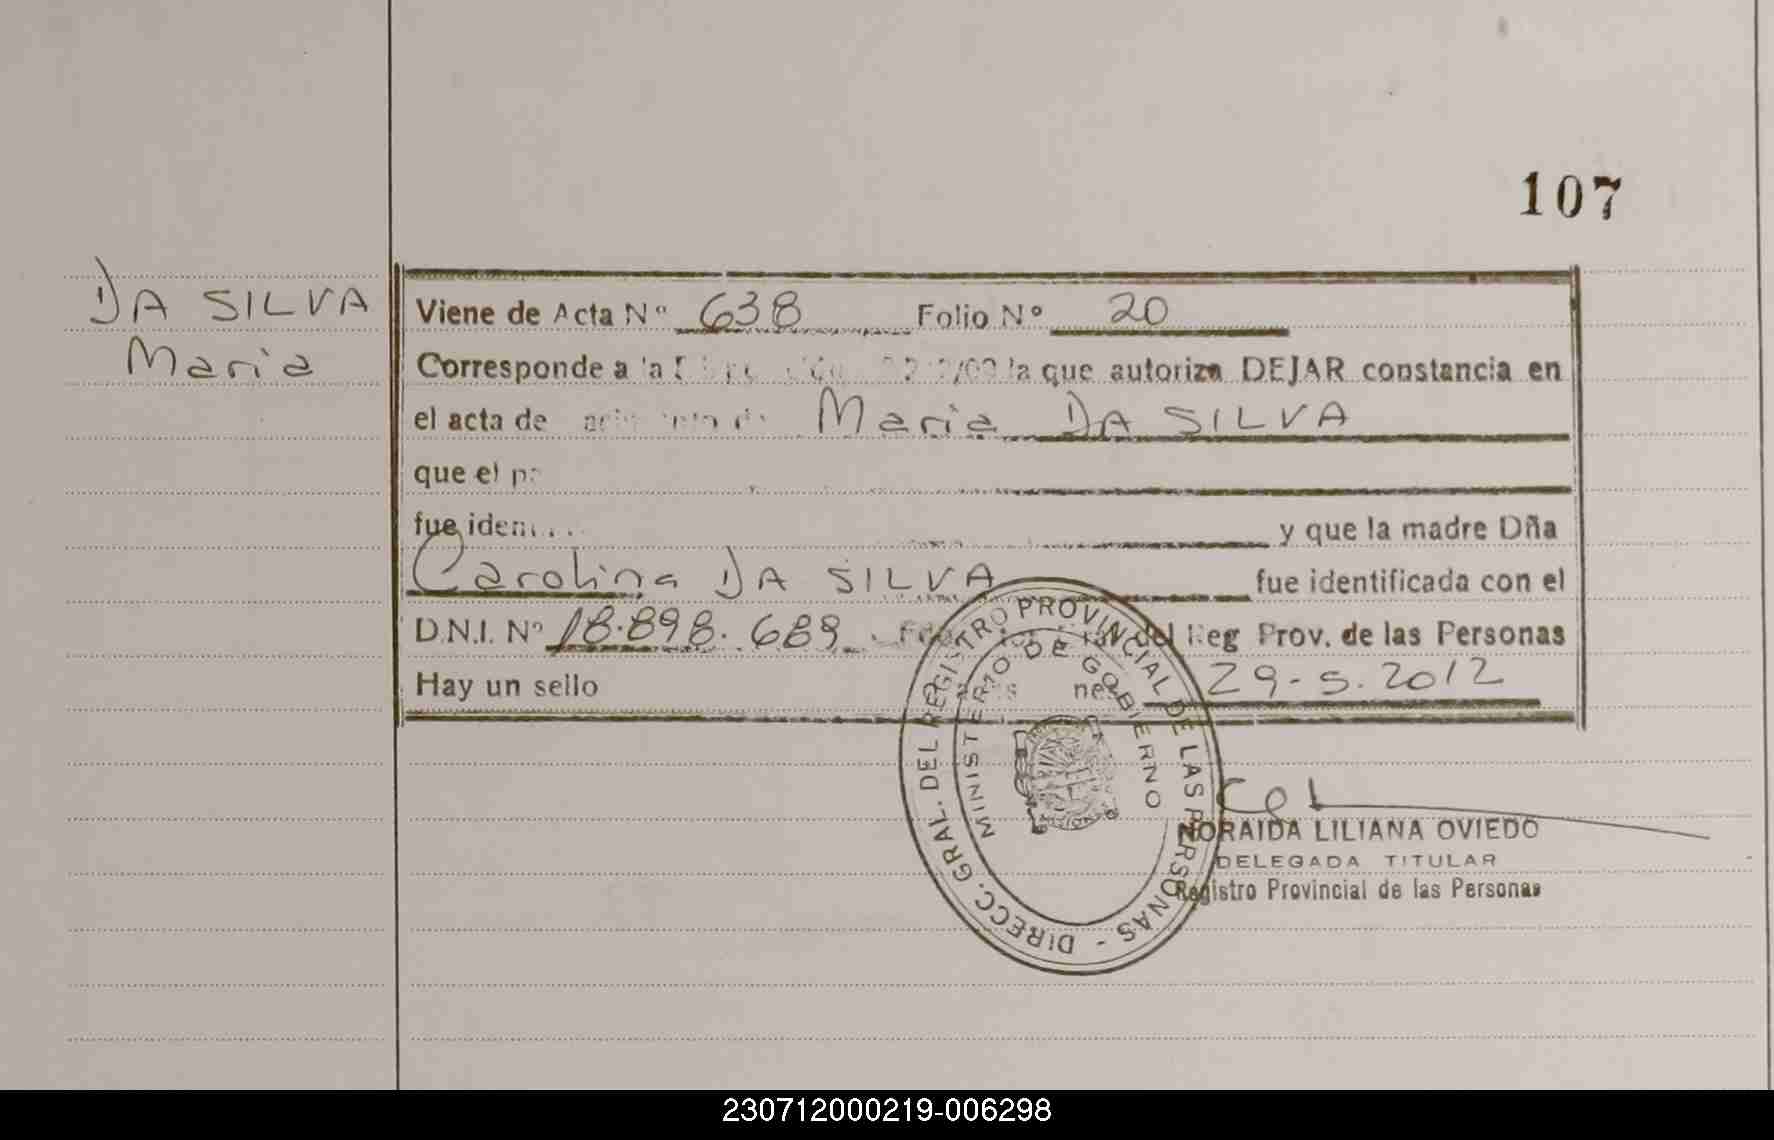 107
DA SILVA
Maria
Viene de Acta Nº 638 Folio Nº 20
Corresponde a la que autoriza DEJAR constancia en
el acta de Maria DA SILVA
que el
fue y que la madre Dña
Carolina DA SILVA fue identificada con el
D.N.I. Nº 18.898.689 del Reg Prov. de las Personas
Hay un sello 29-5.2012
DIRECC. GRAL. DEL REGISTRO PROVINCIAL DE LAS PERSONAS -
MINISTERIO DE GOBIERNO
NORAIDA LILIANA OVIEDO
DELEGADA TITULAR
Registro Provincial de las Personas
230712000219-006298